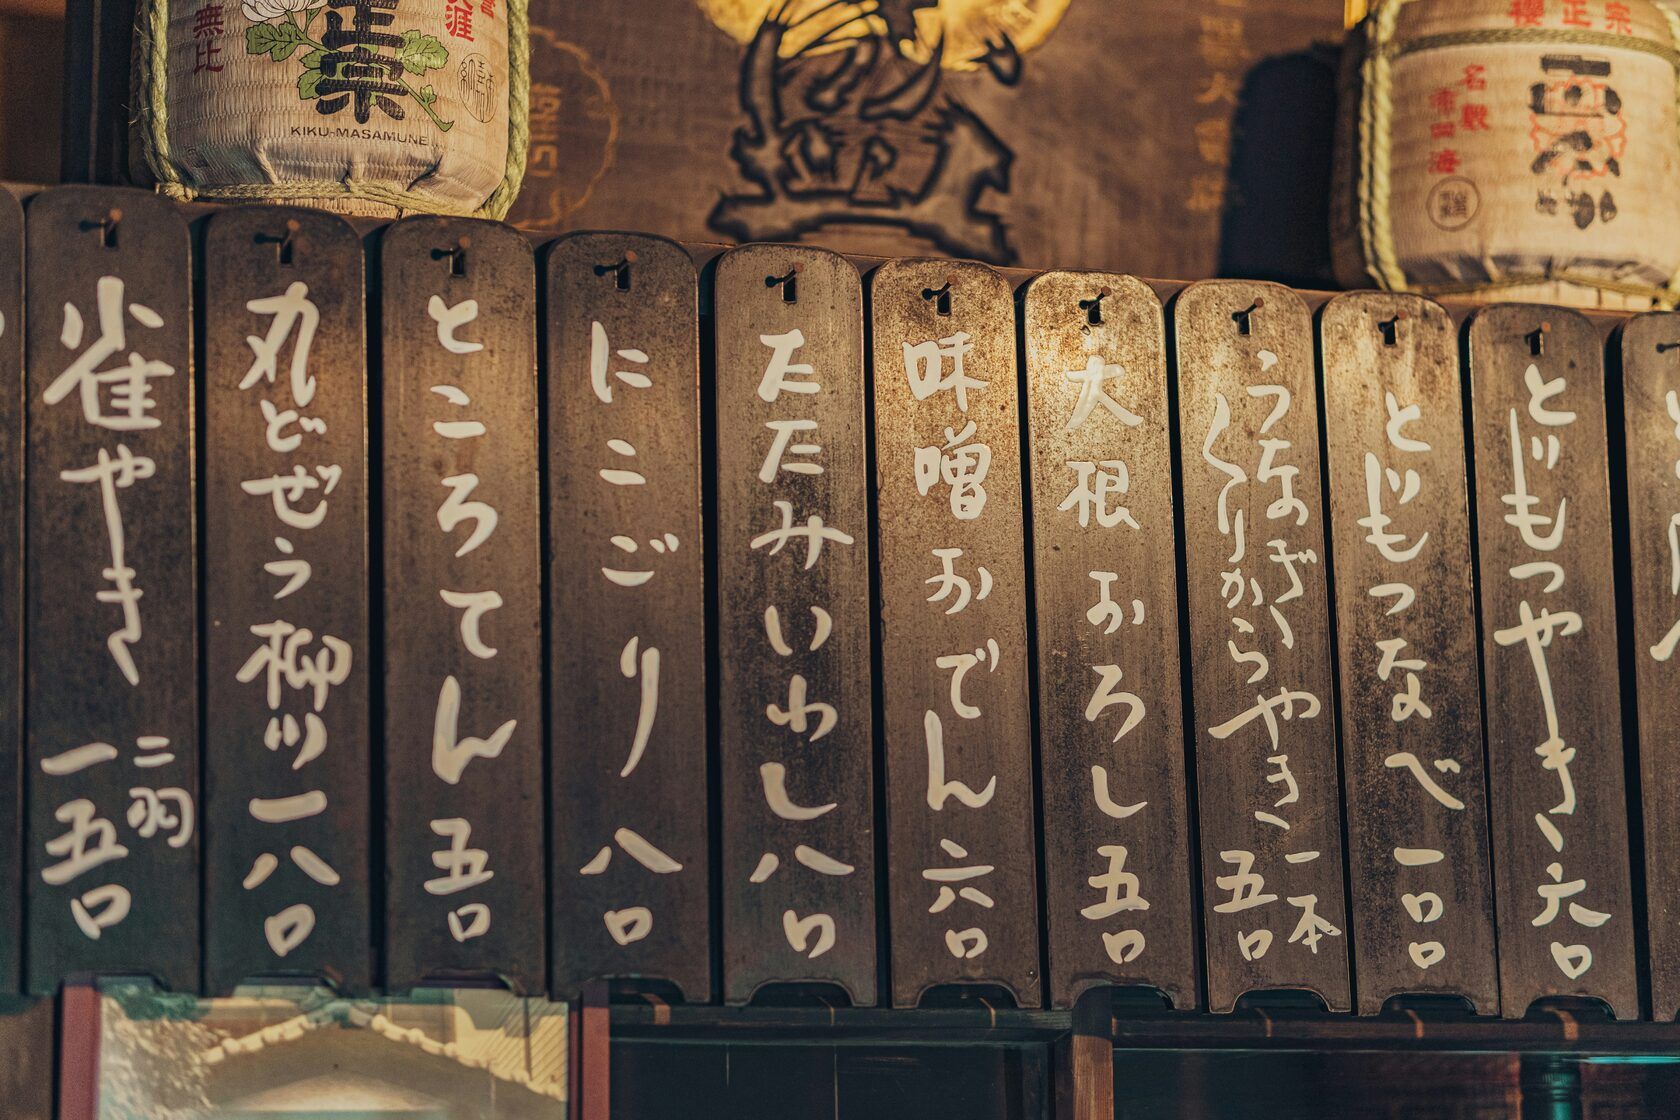 無比
正宗
KIKU-MASAMUNE
正宗
名
とじもつやき、六〇
とじもつなべ 一〇〇
うなぎ、
くりからやき、一本
五〇
大根おろし 五〇
味噌おでん 六〇
たたみいわし 八〇
にこごり 八〇
ところてん 五〇
丸どぜう柳川 一八〇
雀やき 二羽
一五〇